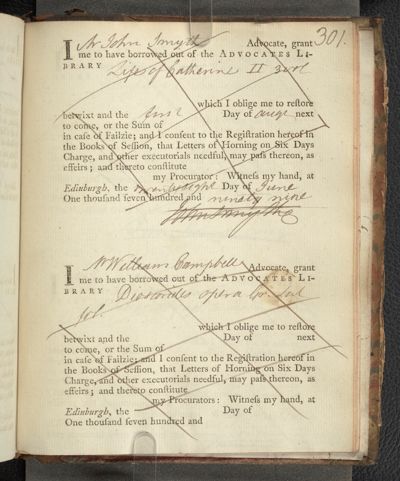 301.
I Mr John Smyth Advocate, grant
me to have borrowed out of the ADVOCATES LI-
BRARY Lifes of Catherine II
which I oblige me to restore
betwixt and the first Day of next
to come, or the Sum of
in case of Failzie; and I consent to the Registration hereof in
the Books of Session, that Letters of Horning on Six Days
Charge, and other executorials needful, may pass thereon, as
effeirs; and thereto constitute
my Procurator: Witness my hand, at
Edinburgh, the twenty eight Day of June
One thousand seven hundred and ninety nine
John Smyth
I Mr William Campbell Advocate, grant
me to have borrowed out of the ADVOCATES LI-
BRARY opera
which I oblige me to restore
betwixt and the Day of next
to come, or the Sum of
in case of Failzie; and I consent to the Registration hereof in
the Books of Session, that Letters of Horning on Six Days
Charge, and other executorials needful, may pass thereon, as
effeirs; and thereto constitute
my Procurators: Witness my hand, at
Edinburgh, the Day of
One thousand seven hundred and